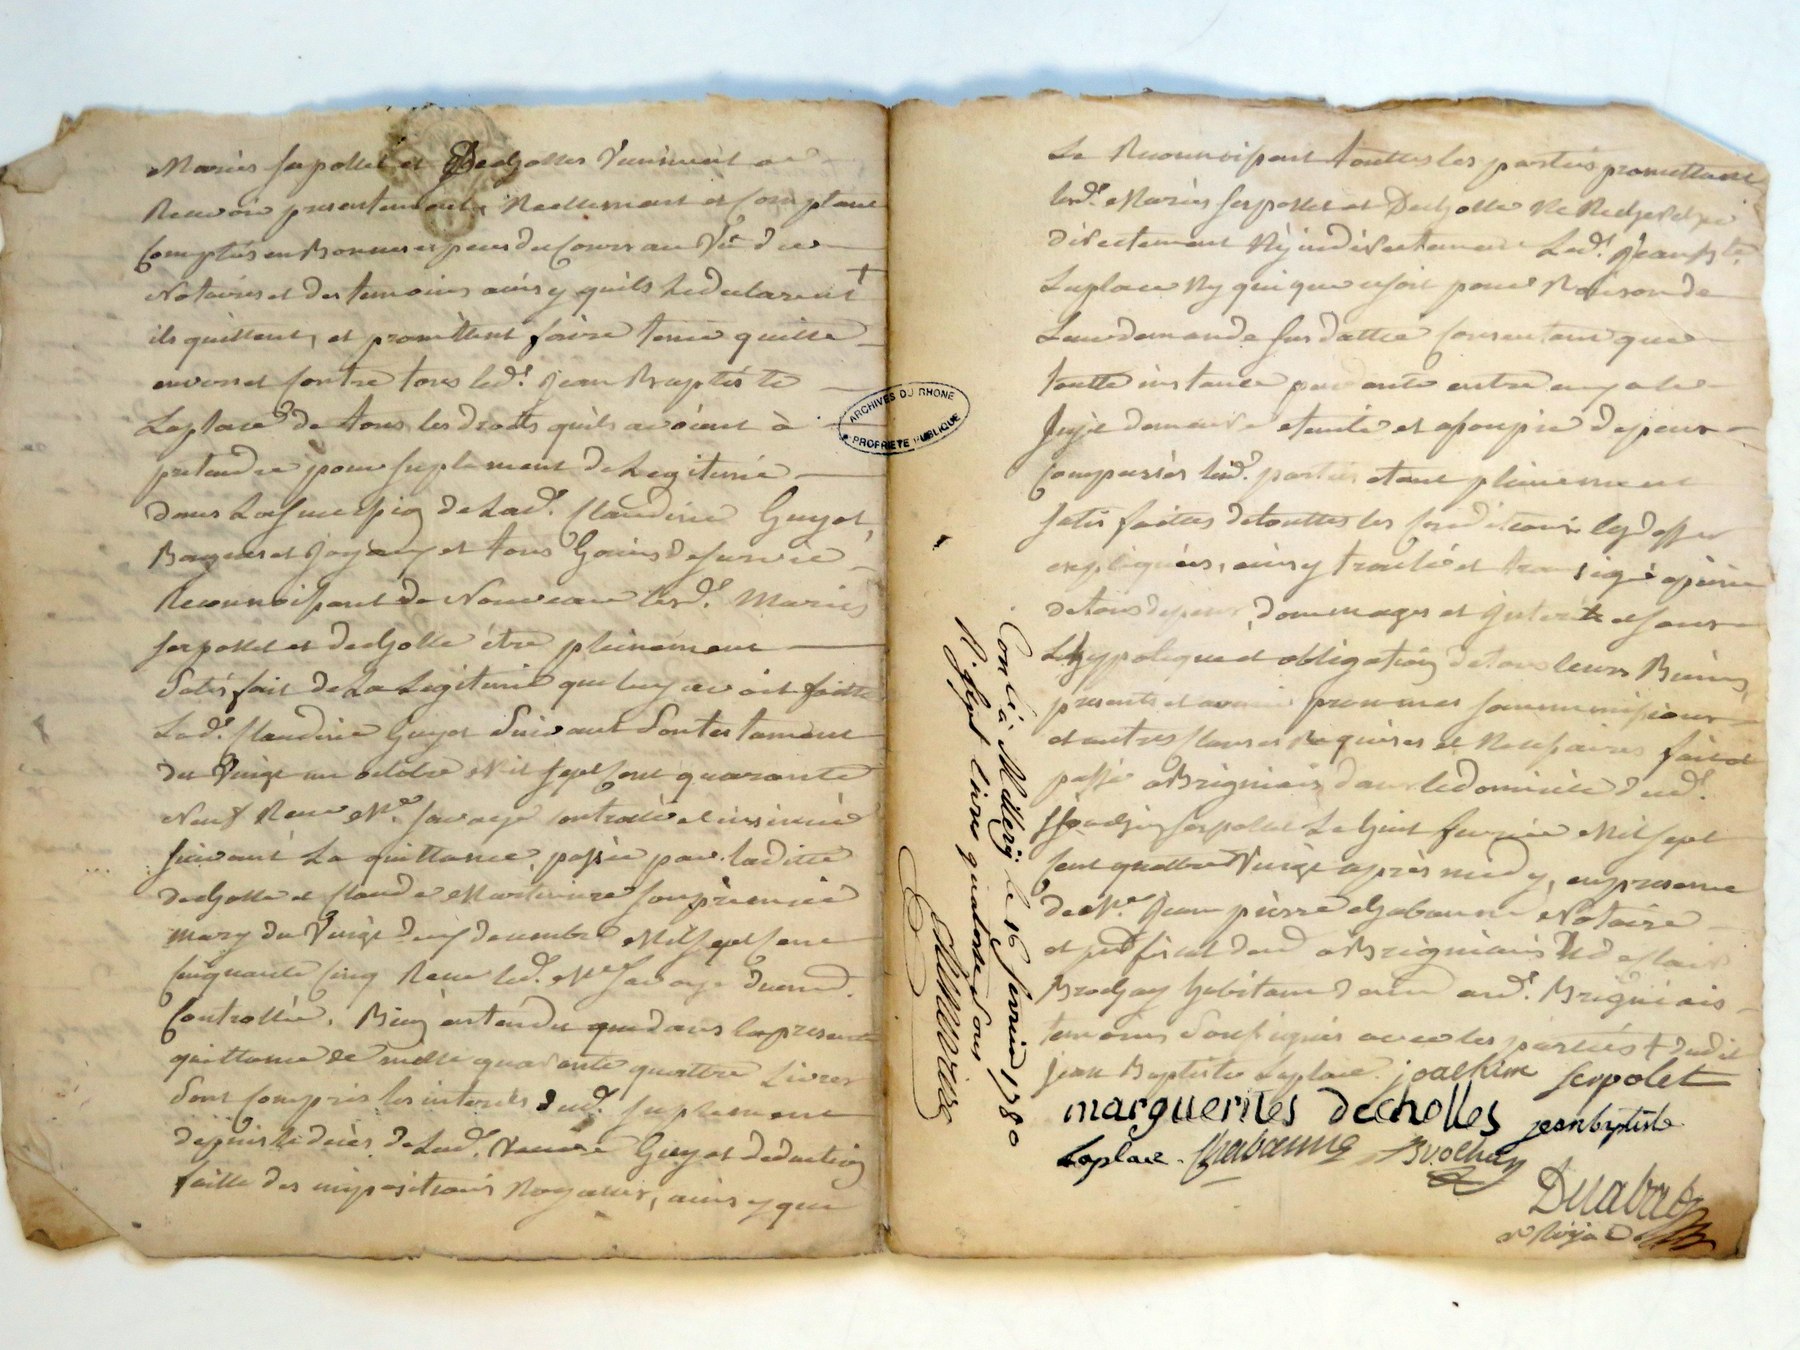 Mariés Serpollet et Decholles viennent de
Recevoir presentement, Reellement et Comptant
Comptés en Bonnes especes du Cours au Vû due
Notaires et des temoins ainsy quils le declarent +
ils quittent, et promettent faire tenir quitte
envers et Contre tous led.t Jean Baptiste
Laplace de tous les droits quils avoient à
pretendre pour suplement de Legitime
dans La succession de Lad.e Claudine Guyot,
Bagues et Joyaux et tous Gains de survie
Reconnoissant de Nouveau lesd.s Mariés
Serpollet et Decholle être pleinement
Satisfait de La Legitime que luy avoit faitte
Lad.e Claudine Guyot Suivant Son testament
du Vingt un octobre Mil Sept Cent quarante
Neuf Reçu M.e Savoye Controllé et insinué
suivant La quittance passée par laditte
decholle et Claude Martiniere son premier
mary du Vingt deux decembre Mil Sept Cent
Cinquante Cinq Reçu led. M.e Savoye duement
Controllée. Bien entendu que dans la presente
quittance de mille quarante quattre Livres
Sont Compris les interets dud. suplement
depuis le decès de Lad.e Veuve Guyot deduction
faitte des impositions Royalles, ainsy que
ARCHIVES DU RHONE
PROPRIETE PUBLIQUE
Con.lé à Millery le 16 fevrier 1780
R. sept Livres quatorze sous
Le Reconnoissent touttes les parties promettant
lesd.s Mariés Serpollet et Decholle Ne Rechercher
directement Ny indirectement Led.t Jean B.te
Laplace Ny qui que ce soit pour Raison de
Leur demande sus dattée Consentant que
toutte instance pendante entre eux a ce
Sujet demeure eteinte et assoupie depens
Compensés lesd. parties etant pleinement
satisfaittes de touttes les Conditions cy dessus
expliquées, ainsy traité et transigé a peine
de tous depens, dommages et interets et sous
L'hypoteque et obligation de tous leurs Biens
presents et avenir promesses soummissions
et autres Clauses Requises et Necessaires fait et
passé a Brignais dans le domicile dud.
Joachin Serpollet Le huit fevrier Mil Sept
Cent quattre Vingt après midy, en presence
de M.e Jean pierre Chabanne Notaire
et a Brignais et de
Brochay habitant aud. Brignais
temoins Soussignés avec les parties + dudit
jean Baptiste Laplace. joachim serpolet
marguerites decholles jeanbaptiste
Laplace. Chabanne Brochay
Delabat
N. Royal